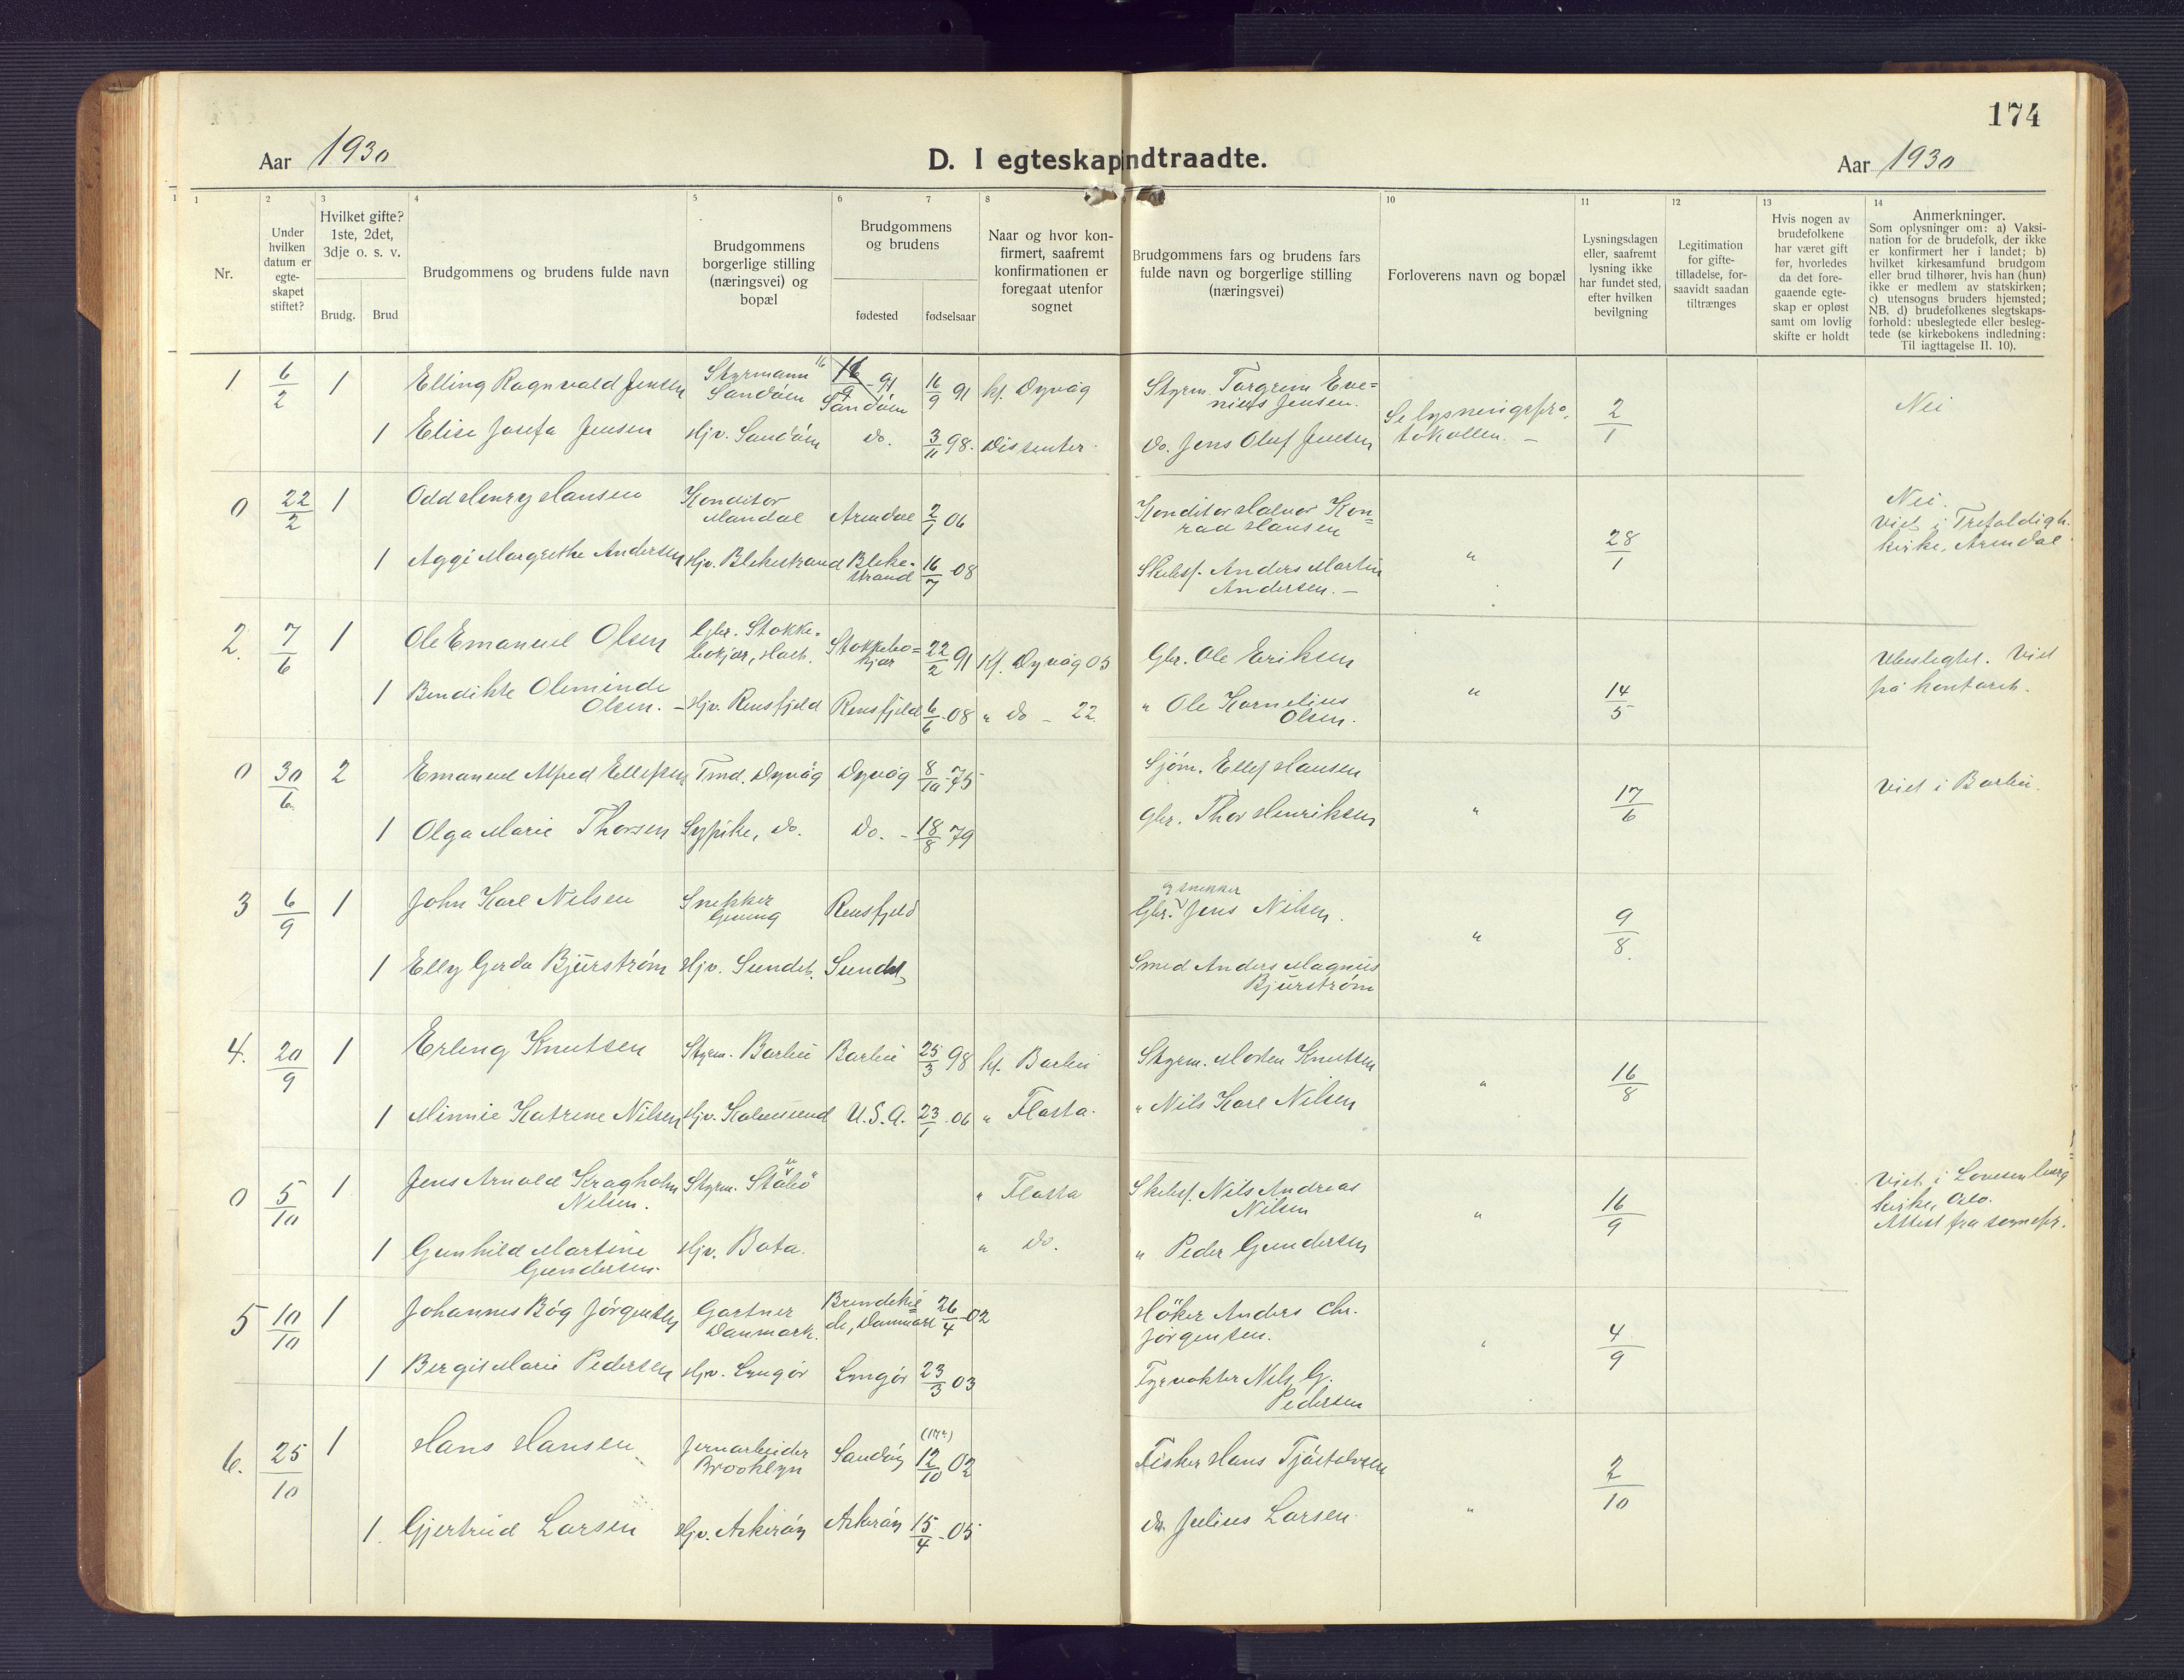 174
Aar 1930
D. I egteskap indtraadte.
Aar 1930
1
1
2
3
4
5
6
7
8
10
11
12
13
14
Nr.
Under
hvilken
datum er
egte-
skapet
stiftet?
Hvilket gifte?
1ste, 2det,
3dje o. s. v.
Brudg.
Brud
Brudgommens og brudens fulde navn
Brudgommens
borgerlige stilling
(næringsvei) og
bopæl
Brudgommens
og brudens
fødested
fødselsaar
Naar og hvor kon-
firmert, saafremt
konfirmationen er
foregaat utenfor
sognet
Brudgommens fars og brudens fars
fulde navn og borgerlige stilling
(næringsvei)
Forloverens navn og bopæl
Lysningsdagen
eller, saafremt
lysning ikke
har fundet sted,
efter hvilken
bevilgning
Legitimation
for gifte-
tilladelse, for-
saavidt saadan
tiltrænges
Hvis nogen av
brudefolkene
har været gift
før, hvorledes
da det fore-
gaaende egte-
skap er opløst
samt om lovlig
skifte er holdt
Anmerkninger.
Som oplysninger om: a) Vaksi-
nation for de brudefolk, der ikke
er konfirmert her i landet; b)
hvilket kirkesamfund brudgom
eller brud tilhører, hvis han (hun)
ikke er medlem av statskirken;
c) utensogns bruders hjemsted;
NB. d) brudefolkenes slegtskaps-
forhold: ubeslegtede eller besleg-
tede (se kirkebokens indledning:
Til iagttagelse II. 10).
1 6/2 1 Elling Ragnvald Jensen Styrmann Sandøen 16/9 - 91 Sandøen 16/9 91 kf. Dyvåg Styrm. Torgrim Eve=
nius Jensen. Se lysningspro-
tokollen. - 2/1 Nei
1 Elise Josefa Jensen Hjv. Sandøen do. 3/11 98. Dissenter. do. Jens Oluf Jensen
0 22/2 1 Odd Henry Hansen Konditor
Mandal Arendal 2/1 06 Konditor Halvor Kon=
rad Hansen " 28/1 Nei.
Viet i Trefoldigh.
kirke, Arendal
1 Aggi Margrethe Andersen Hjv. Blekestrand Bleke-
strand 16/7 - 08 Skibsf. Anders Martin
Andersen. -
2. 7/6 1 Ole Emanuel Olsen Gbr. Stokke=
bokjær, Holt. Stokkebo=
kjær 22/2 91 Kf. Dyvåg 05 Gbr. Ole Eriksen " 14/5 Ubeslegtet. Viet
på kontoret.
1 Bendikte Oleminde
Olsen. - Hjv. Rensfjeld Rensfjeld 6/6 - 08 " do - 22. " Ole Kornelius
Olsen.
0 30/6 2 Emanuel Alfred Ellefsen Tmd. Dyvåg Dyvåg 8/10 - 75 Sjøm. Ellef Hansen " 17/6 Viet i Barbu.
1 Olga Marie Thorsen Sypike, do. do. - 18/8 79 Gbr. Thor Henriksen
3 6/9 1 John Karl Nilsen Snekker
Goving Rensfjeld og snekker
Gbr. Jens Nilsen. " 9/8.
1 Elly Gerda Bjurstrøm Hjv. Sundet. Sundet Smed Anders Magnus
Bjurstrøm
4. 20/9 1 Erling Knutsen Styrm. Barbu Barbu 25/3 98 kf. Barbu Styrm. Morten Knutsen " 16/8
1 Minnie Katrine Nilsen Hjv. Kalvesund U.S.A. 23/1 - 06 " Flosta. " Nils Karl Nilsen
0 5/10 1 Jens Arnold Kragholm
Nilsen. Styrm. " Flosta Skibsf. Nils Andreas
Nilsen " 16/9 Viet i Lovisenberg
kirke, Oslo.
Attest fra sognepr.
1 Gunhild Martine
Gundersen. Hjv. Bota. " do. " Peder Gundersen
5 10/10 1 Johannes Bøg Jørgensen Gartner
Danmark. Brendeki=
de, Danmark 26/4 - 02 Høker Anders Chr.
Jørgensen. " 4/9
1 Bergit Marie Pedersen Hjv. Lyngør Lyngør 23/3 03 Fyrvokter Nils G.
Pedersen
6. 25/10 1 Hans Hansen Jernarbeider
Brooklyn Sandøy 12/10 02 Fisker Hans Tjøstolvsen " 2/10
1. Gjertrud Larsen Hjv. Askerøy Askerøy 15/4 - 05 do. Julius Larsen.